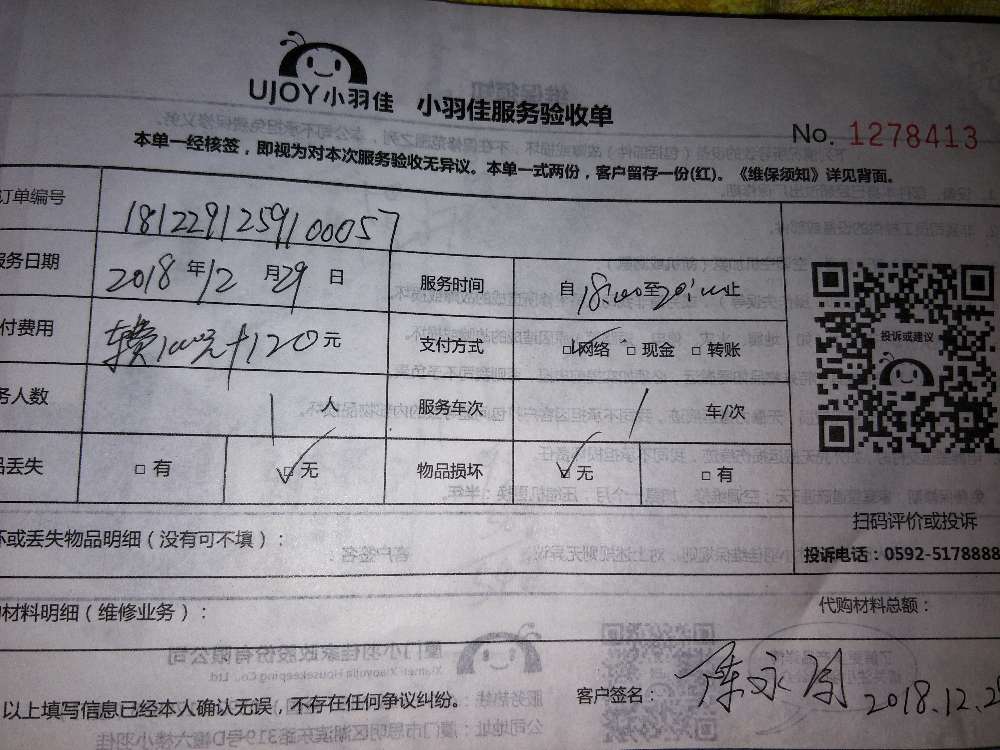 UJOY小羽佳 小羽佳服务验收单
No. 1278413
本单一经核签，即视为对本次服务验收无异议。本单一式两份，客户留存一份(红)。《维保须知》详见背面。
订单编号 1812291259100057
服务日期 2018年12月29日 服务时间 自18:00至20:00止
付费用 100元+120元 支付方式 □网络 □现金 □转账
务人数 1人 服务车次 1车/次
品丢失 □有 □无 物品损坏 □无 □有
投诉或建议
扫码评价或投诉
投诉电话：0592-5178888
坏或丢失物品明细（没有可不填）：
购材料明细（维修业务）：
代购材料总额：
以上填写信息已经本人确认无误，不存在任何争议纠纷。
客户签名： 2018.12.2